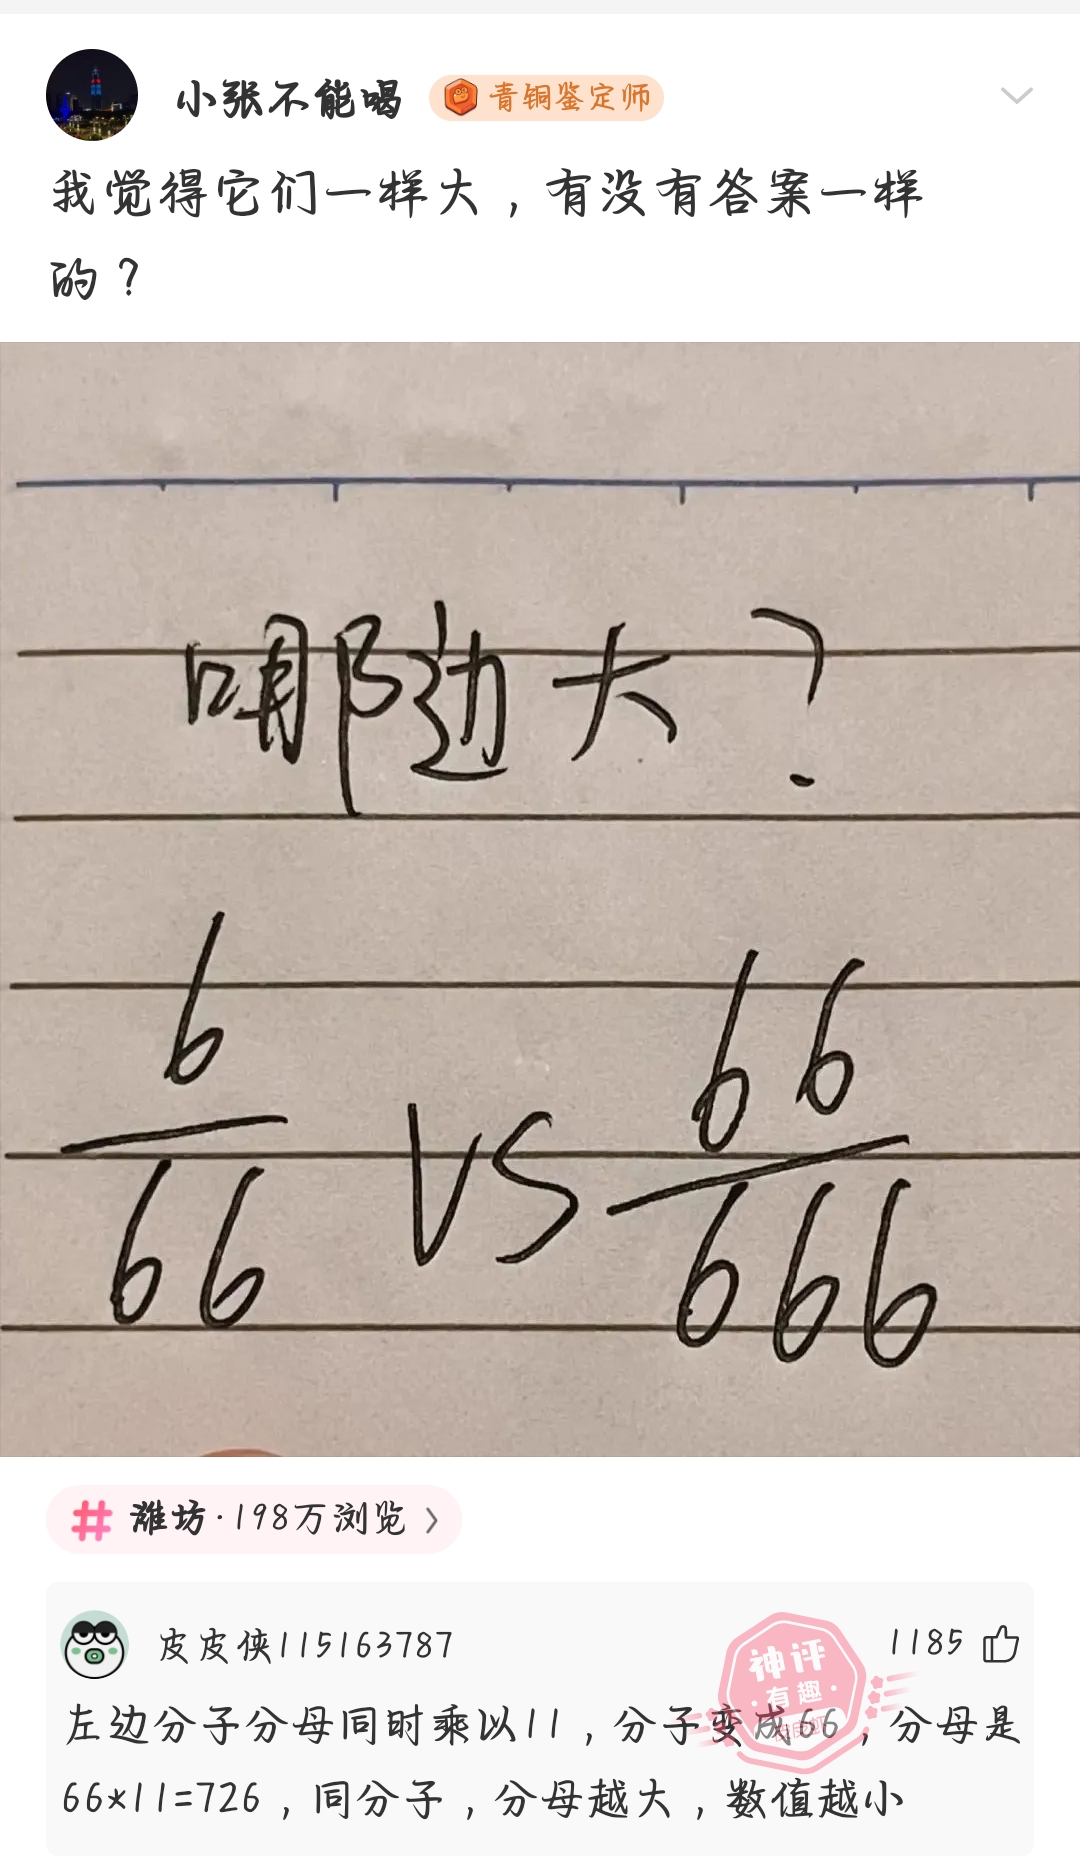 小张不能喝 青铜鉴定师
我觉得它们一样大，有没有答案一样
的？
哪边大？
6
66
VS
66
666
潍坊·198万浏览
皮皮侠115163787
神评
·有趣·
1185
左边分子分母同时乘以11，分子变成66，分母是
66*11=726，同分子，分母越大，数值越小